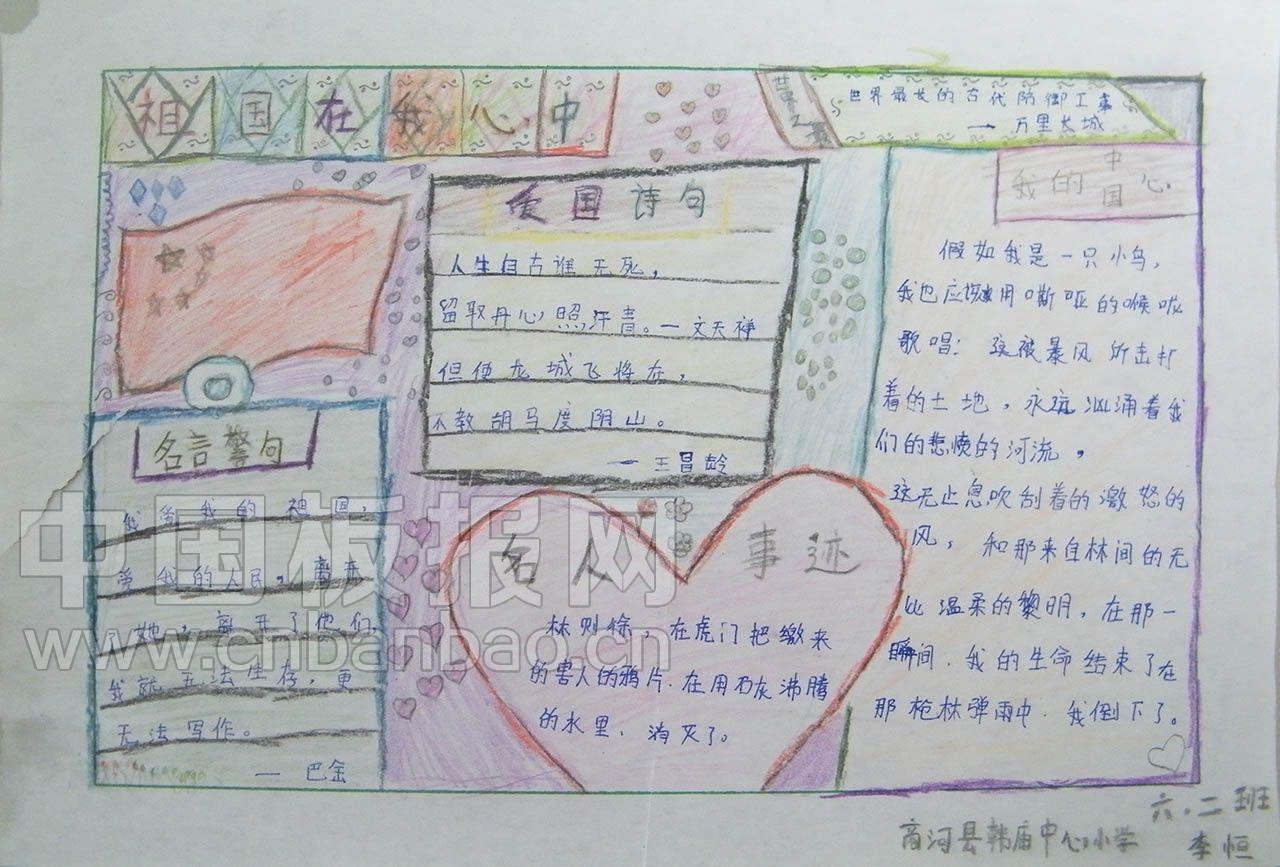 祖国在我心中
世界最长的古代防御工事
— 万里长城
爱国诗句
人生自古谁无死，
留取丹心照汗青。—文天祥
但使龙城飞将在，
不教胡马度阴山。
— 王昌龄
名言警句
我爱我的祖国，
爱我的人民，离开
她，离开了他们，
我就无法生存，更
无法写作。
— 巴金
名人事迹
林则徐，在虎门把缴来
的害人的鸦片.在用石灰沸腾
的水里、消灭了。
我的中国心
假如我是一只小鸟，
我也应该用嘶哑的喉咙
歌唱：这被暴风所击打
着的土地，永远汹涌着我
们的悲愤的河流，
这无止息吹刮着的激怒的
风，和那来自林间的无
比温柔的黎明，在那一
瞬间.我的生命结束了在
那枪林弹雨中.我倒下了。
六.二班
商河县韩庙中心小学 李恒
中国板报网
www.cnbanbao.cn